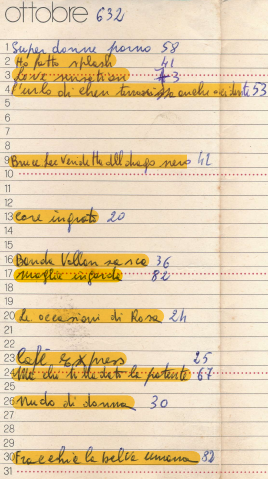 ottobre 632
1 Super donne porno 58
2 Ho fatto splash 41
3 Love 3
4 l'urlo di chen terrorizza anche occidente 53
5
6
7
8
9 Bruce Lee vendetta del drago nero 42
10
11
12
13 Core ingrato 20
14
15
16 Banda Vallanzasca 36
17 moglie ingorda 82
18
19
20 le occasioni di Rosa 24
21
22
23 Cafè Express 25
24 Ma che ti ha dato la patente 67
25
26 nudo di donna 30
27
28
29
30 Fracchia la belva umana 82
31